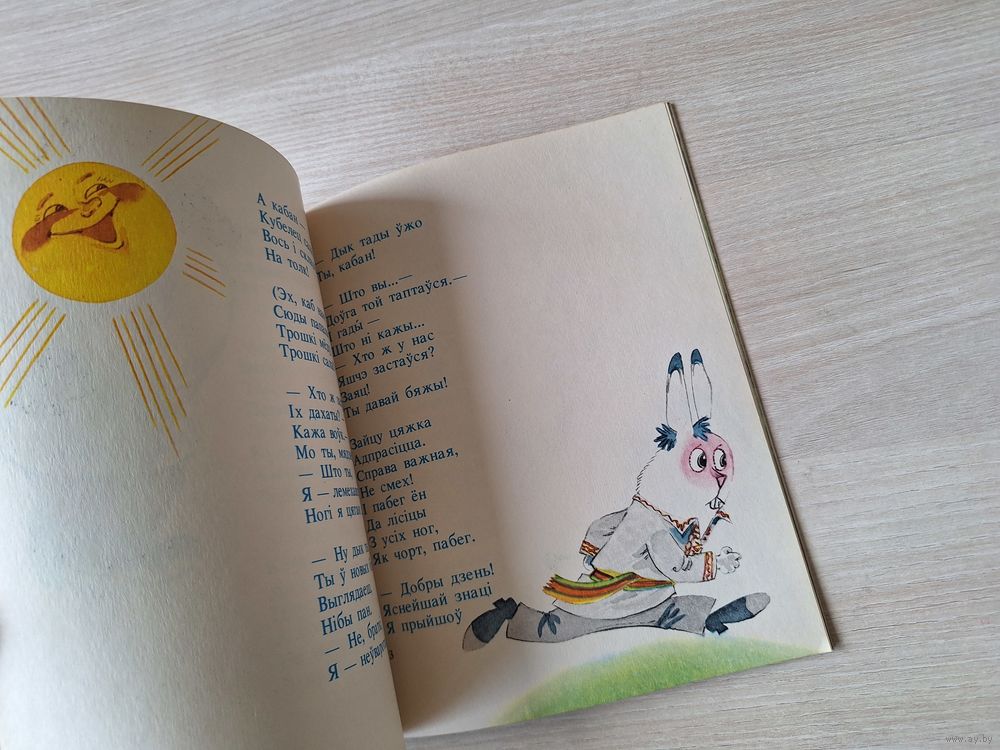 А кабан —
Кубелец
Вось і
На толк!
(Эх, каб
Сюды
Трошкі
Трошкі
— Хто ж
Іх дахаты?
Кажа воўк.—
Мо ты,
— Што ты,
Я —
Ногі я
— Ну дык
Ты ў новых
Выглядаеш,
Нібы пан.
— Не,
Я —
— Дык тады ўжо
Ты, кабан!
— Што вы...—
Доўга той таптаўся.—
І гады́ —
Што ні кажы...
— Хто ж у нас
Яшчэ застаўся?
Заяц!
Ты давай бяжы!
Зайцу цяжка
Адпрасіцца.
Справа важная,
Не смех!
І пабег ён
Да лісіцы
З усіх ног,
Як чорт, пабег.
— Добры дзень!
Яснейшай знаці
Я прыйшоў
www.ay.by